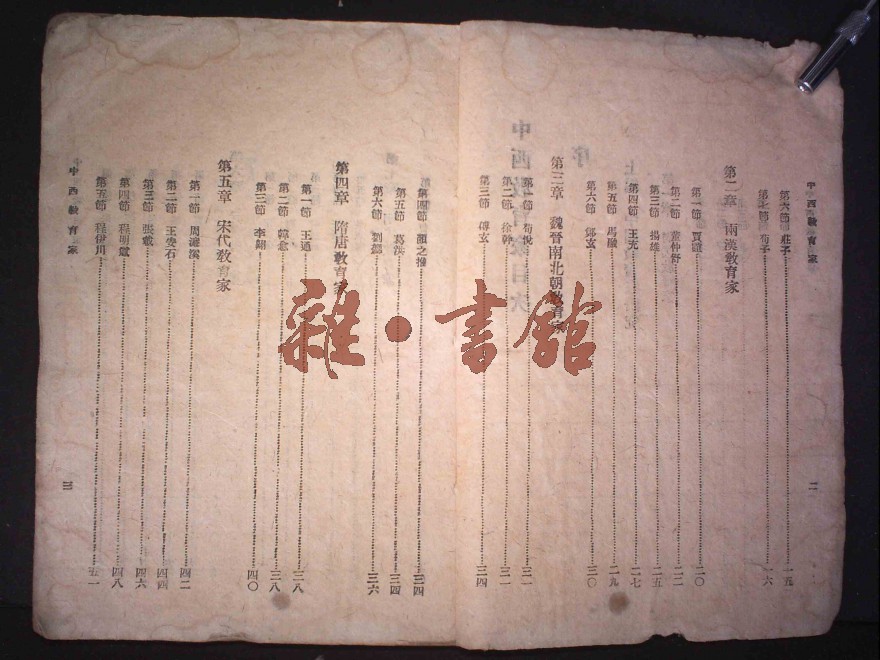 中西教育家
二
第六節 莊子 一五
第七節 荀子 一六
第二章 兩漢敎育家
第一節 賈誼 二〇
第二節 董仲舒 二二
第三節 揚雄 二五
第四節 王充 二七
第五節 馬融 二九
第六節 鄭玄 三〇
第三章 魏晉南北朝敎育家
第一節 荀悅 三一
第二節 徐幹 三一
第三節 傅玄 三四
第四節 顏之推 三四
第五節 葛洪 三四
第六節 劉勰 三六
第四章 隋唐敎育家
第一節 王通 三八
第二節 韓愈 三八
第三節 李翺 四〇
第五章 宋代敎育家
第一節 周濂溪 四二
第二節 王安石 四四
第三節 張載 四六
第四節 程明道 四八
第五節 程伊川 五一
中西敎育家
三
雜·書館